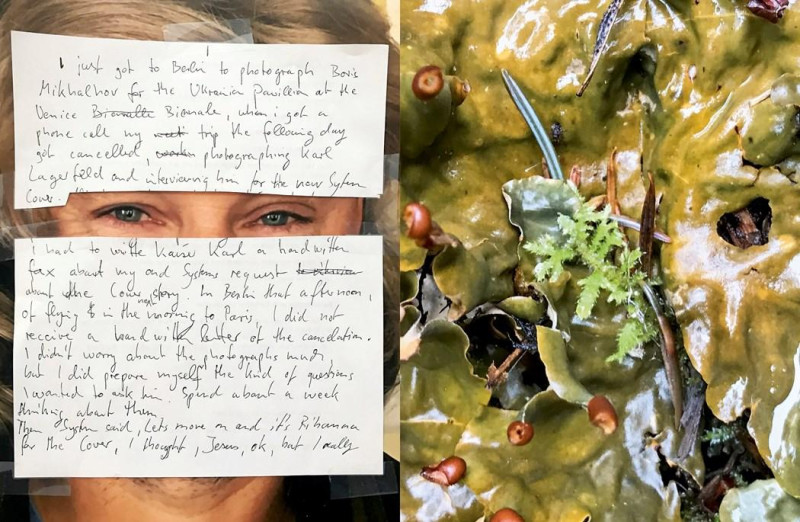 I just got to Berlin to photograph Boris
Mikhailov for the Ukranian Pavillion at the
Venice Biennalle Bienale, when i got a
phone call my week trip the following day
got cancelled, photographing Karl
Lagerfeld and interviewing him for the new System
Cover.
I had to write Kaise Karl a handwritten
fax about my and Systems request
about the Cover story. In Berlin that afternoon,
of flying in the next morning to Paris, I did not
receive a hand with letter of the cancelation.
I didn't worry about the photographs much,
but I did prepare myself the kind of questions
I wanted to ask him. Spend about a week
thinking about them.
Then System said, Lets move on and it's Rihanna
for the Cover, I thought, Jesus, ok, but I really